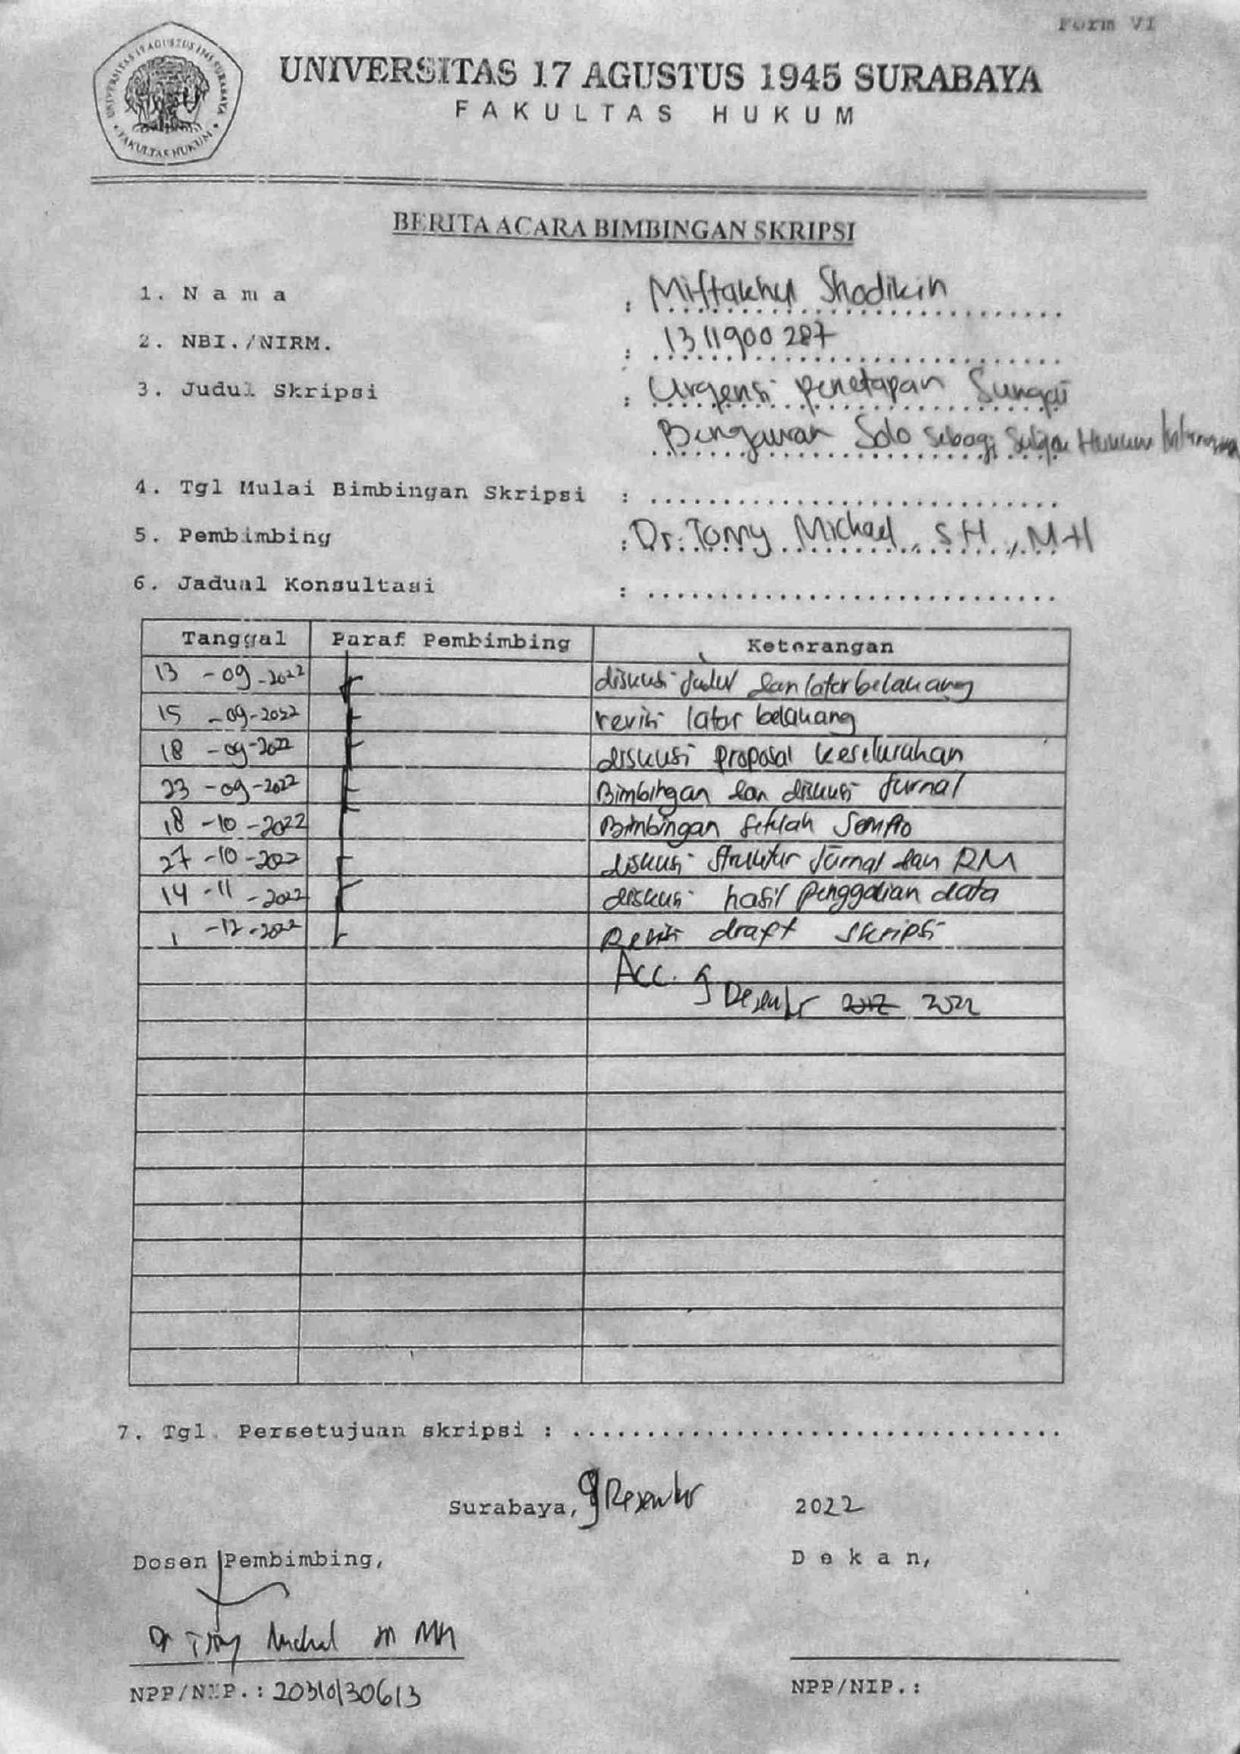 Form VI
UNIVERSITAS 17 AGUSTUS 1945 SURABAYA
FAKULTAS HUKUM
UNIVERSITAS 17 AGUSTUS 1945 SURABAYA
FAKULTAS HUKUM
BERITA ACARA BIMBINGAN SKRIPSI
1. N a m a : Miftakhul Shodikin
2. NBI./NIRM. : 1311900287
3. Judul Skripsi : Urgensi penetapan Sungai
Bengawan Solo sebagi Subjek Hukum
4. Tgl Mulai Bimbingan Skripsi : ............................
5. Pembimbing : Dr. Tomy Michael, SH., MH
6. Jadual Konsultasi : ............................
Tanggal Paraf Pembimbing Keterangan
13 -09-2022 diskusi Judul dan latar belakang
15 -09-2022 revisi latar belakang
18 -09-2022 diskusi proposal keselurahan
23 -09-2022 Bimbingan dan diskusi Jurnal
18 -10-2022 Bimbingan setelah Sempro
27 -10-2022 diskusi Struktur Jurnal dan RM
14 -11-2022 diskusi hasil penggalian data
1 -12-2022 Revisi draft skripsi
Acc. 9 Desember 2022
7. Tgl. Persetujuan skripsi : ..................................
Surabaya, 9 Desember 2022
Dosen Pembimbing, D e k a n,
Dr Tomy Michael SH MH
NPP/NIP.: 20310130613 NPP/NIP.: